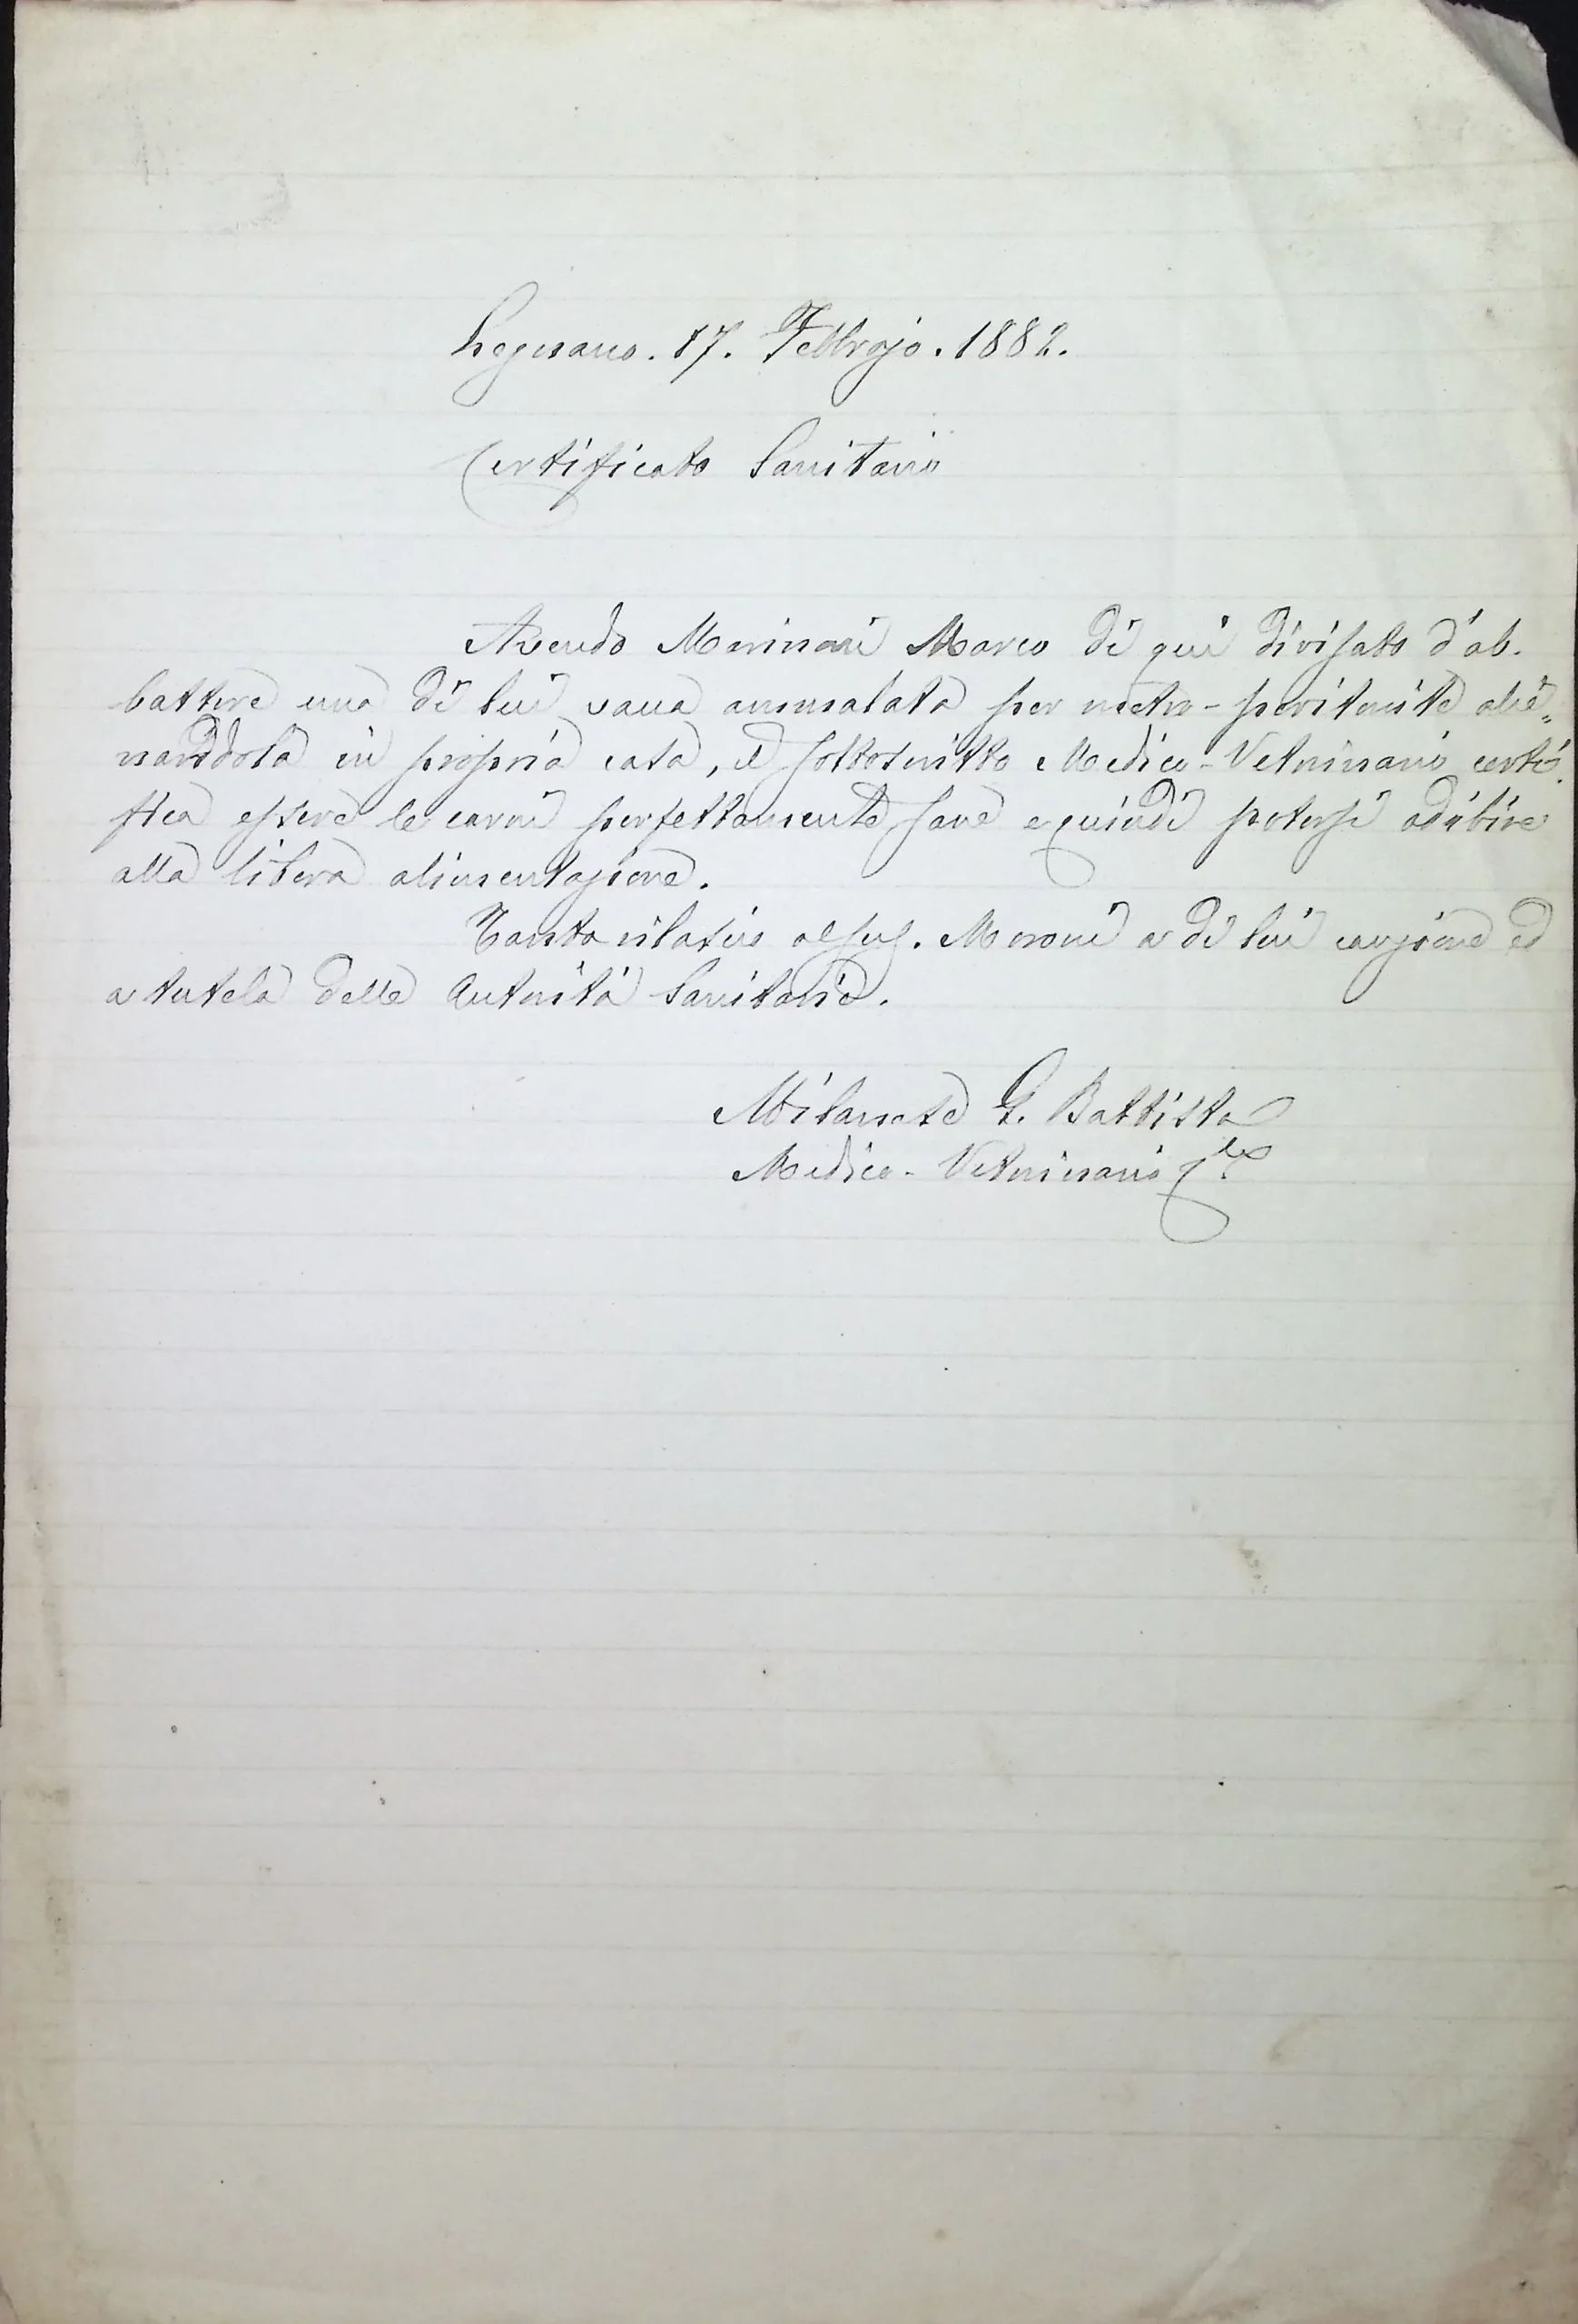 Legnano. 17. Febbrajo. 1882.
Certificato Sanitario
Avendo Marco di qui divisato d'ab-
battere una di lui vacca ammalata per metro-peritonite alie„
nanddola in propria casa, il sottoscritto Medico-Veterinario certi-
fica essere le carni perfettamente sane e quindi potersi adibire
alla libera alimentazione.
Tanto rilascio al sug. Moroni a di lui cauzione ed
a tutela delle Autorità Sanitarie.
Milanese G. Battista
Medico-Veterinario